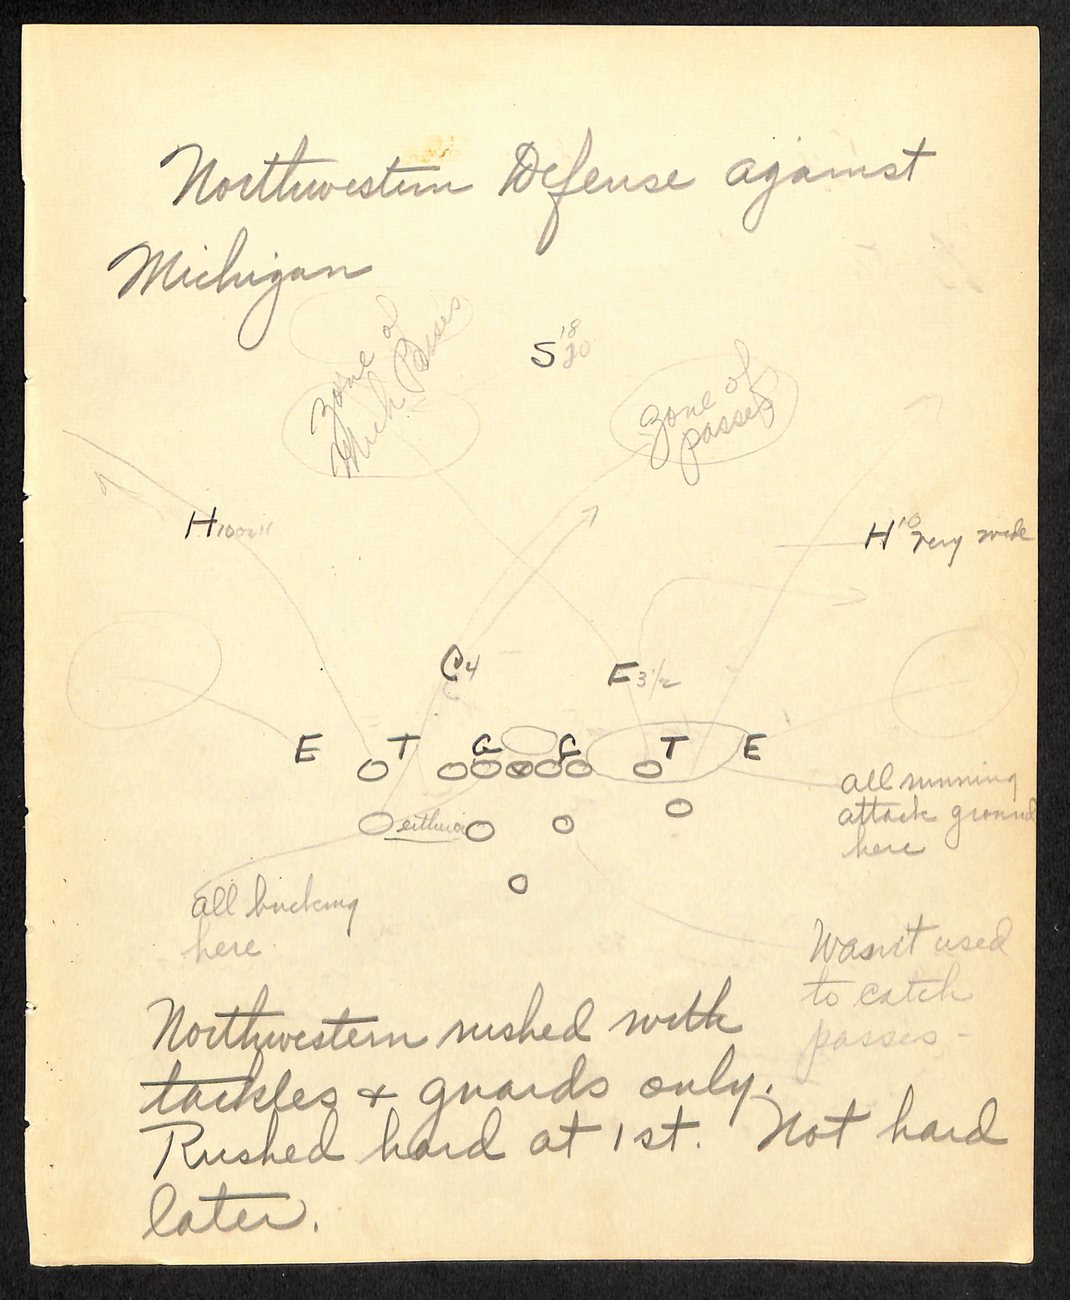 Northwestern Defense against
Michigan
zone of
Mich Passes
S 18
20
zone of
passes
H 10 or 11
H 10 very wide
C 4
F 3 1/2
E T G G T E
all running
attack ground
here
either
all bucking
here
Wasn't used
to catch
passes -
Northwestern rushed with
tackles & guards only.
Rushed hard at 1st. Not hard
later.